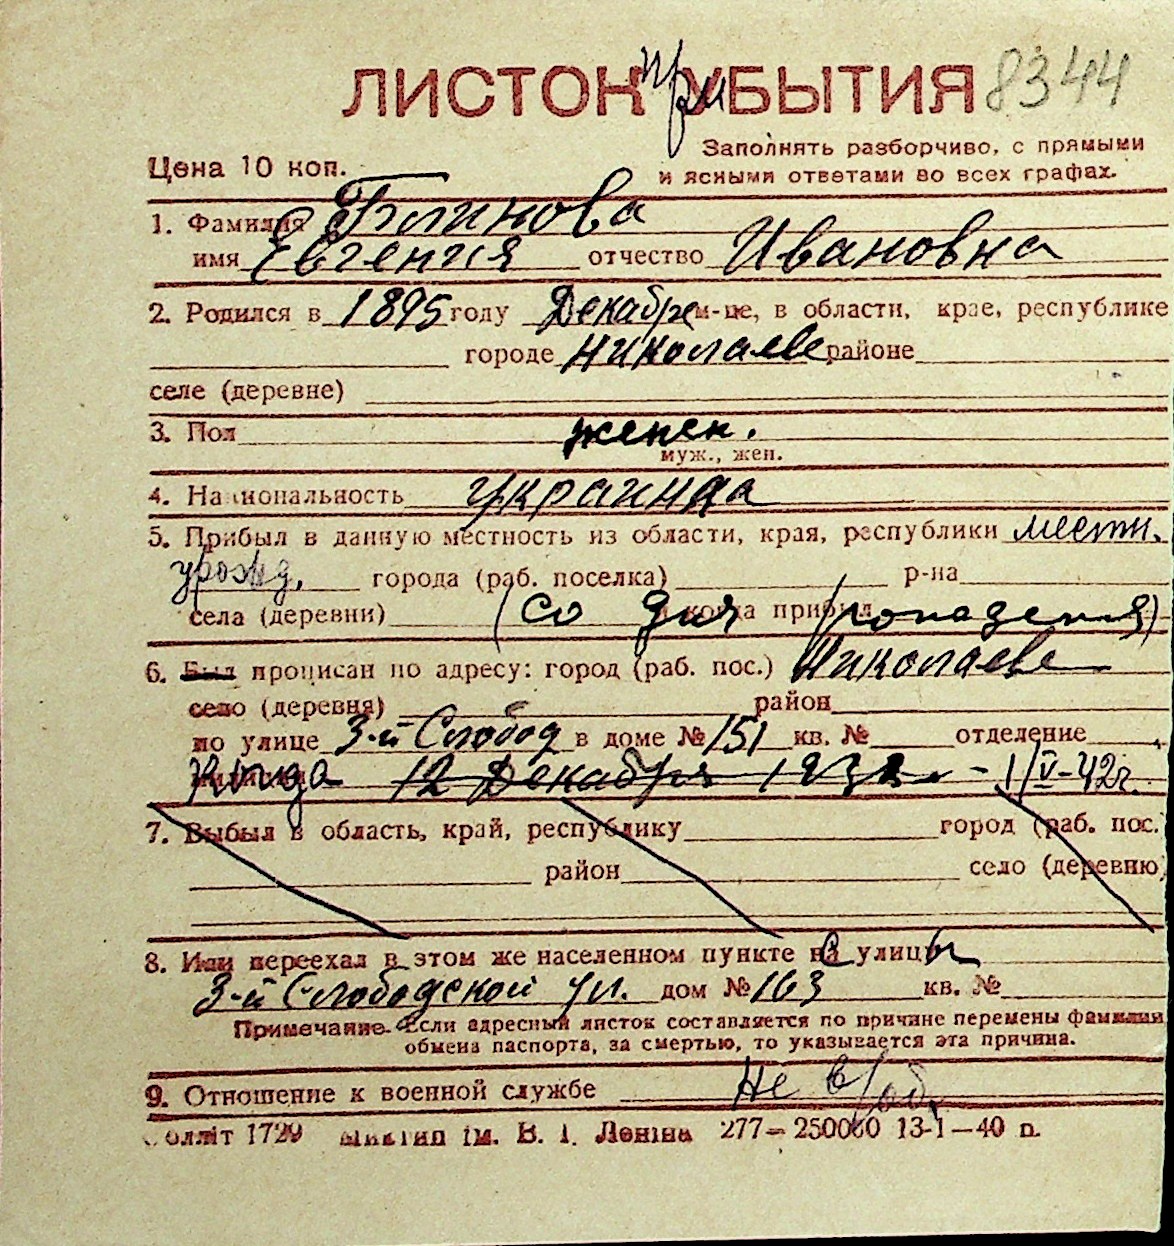 ЛИСТОК при УБЫТИЯ 8344
Цена 10 коп.
Заполнять разборчиво, с прямыми
и ясными ответами во всех графах.
1. Фамилия Блинова
имя Евгения отчество Ивановна
2. Родился в 1895 году Декабре м-це, в области, крае, республике
городе Николаеве районе
селе (деревне)
3. Пол женск.
муж., жен.
4. Национальность украинка
5. Прибыл в данную местность из области, края, республики местн.
урожд. города (раб. поселка) р-на
села (деревни) (со дня рождения)
6. Был прописан по адресу: город (раб. пос.) Николаеве
село (деревня) район
по улице 3-й Слобод в доме № 151 кв. № отделение
Когда 12 Декабря - 1/V-42г.
7. Выбыл в область, край, республику город (раб. пос.)
район село (деревню)
8. Или переехал в этом же населенном пункте с улицы
3-й Слободской ул. дом № 163 кв. №
Примечание. Если адресный листок составляется по причине перемены фамилии
обмена паспорта, за смертью, то указывается эта причина.
9. Отношение к военной службе Не в/об.
1729 ім. В. І. Леніна 277—250000 13-1—40 п.